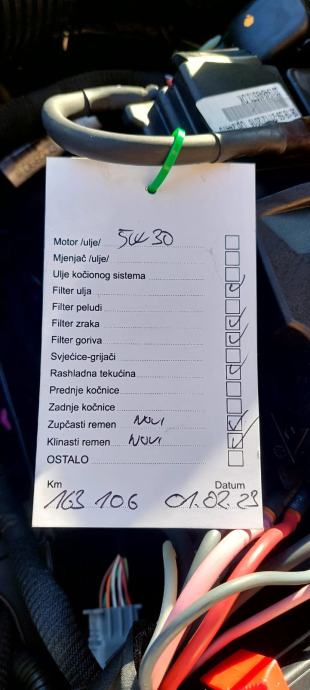 Motor /ulje/ 5W30
Mjenjač /ulje/
Ulje kočionog sistema
Filter ulja
Filter peludi
Filter zraka
Filter goriva
Svjećice-grijači
Rashladna tekućina
Prednje kočnice
Zadnje kočnice
Zupčasti remen NOVI
Klinasti remen NOVI
OSTALO
Km Datum
163 106 01.02.23